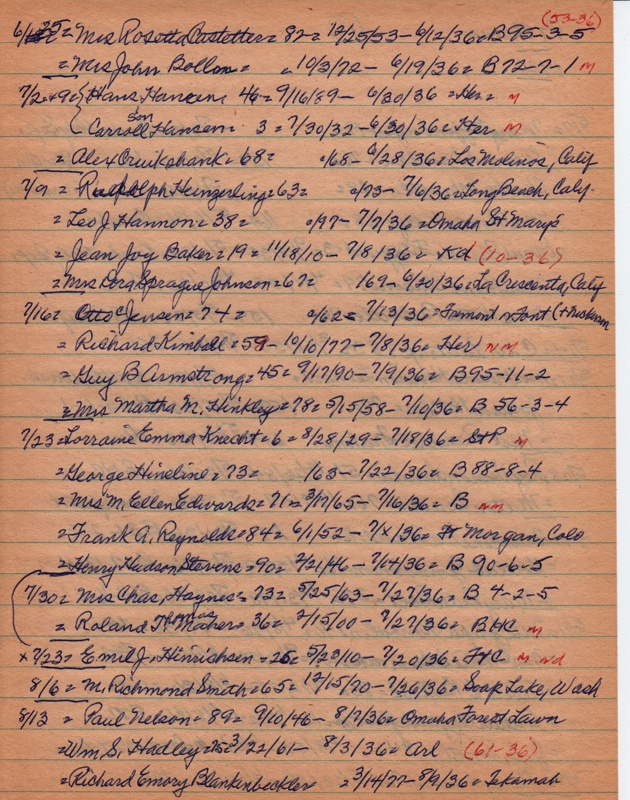 (53-36)
6/25 = Mrs Rosetta Castetter = 82 = 12/25/53 - 6/12/36 = B95-3-5
= Mrs John Bollon = 10/3/72 - 6/19/36 = B72-7-1 m
7/2 & 9 = Hans Hansen 46 = 9/16/89 - 6/30/36 = Her = m
Carroll Hansen son = 3 = 7/30/32 - 6/30/36 = Her m
= Alex Cruikshank = 68 = /68 - 6/28/36 = Los Molinos, Calif
7/9 = Rudolph Heinzerling = 63 = /73 - 7/6/36 = Long Beach, Calif.
= Leo J Hannon = 38 = /97 - 7/7/36 = Omaha St Mary's
= Jean Joy Baker = 19 = 11/18/10 - 7/8/36 = Kd (10-36)
= Mrs Dora Sprague Johnson = 67 = /69 - 6/20/36 = La Crescenta, Calif
7/16 = Otto C Jensen = 74 = /62 = 7/13/36 = Fremont n Font (+ Nickerson
= Richard Kimball = 59 - 10/10/77 - 7/8/36 = Her nm
= Guy B Armstrong = 45 = 9/17/90 - 7/9/36 = B95-11-2
= Mrs Martha M. Hinkley = 78 = 5/15/58 - 7/10/36 = B 56-3-4
7/23 = Lorraine Emma Knecht = 6 = 8/28/29 - 7/18/36 = StP m
= George Hineline = 73 = /63 - 7/22/36 = B 88-8-4
= Mrs M. Ellen Edwards = 71 = 3/17/65 - 7/16/36 = B nm
= Frank A. Reynolds = 84 = 6/1/52 - 7/x/36 = Ft Morgan, Colo
= Henry Hudson Stevens = 90 = 2/21/46 - 7/14/36 = B 90-6-5
7/30 = Mrs Chas, Haynes = 73 = 5/25/63 - 7/27/36 = B 4-2-5
= Roland Thomas Maher = 36 = 2/15/00 - 7/27/36 = BHC m
x 7/23 = Emil J. Hinrichsen = 26 = 5/23/10 - 7/20/36 = FVC m nd
8/6 = M. Richmond Smith = 65 = 12/15/70 - 7/26/36 = Soap Lake, Wash
8/13 = Paul Nelson = 89 = 9/10/46 - 8/7/36 = Omaha Forest Lawn
= Wm, S. Hadley = 75 = 3/22/61 - 8/3/36 = Arl (61-36)
= Richard Emory Blankenbeckler = 3/14/77 - 8/9/36 = Tekamah